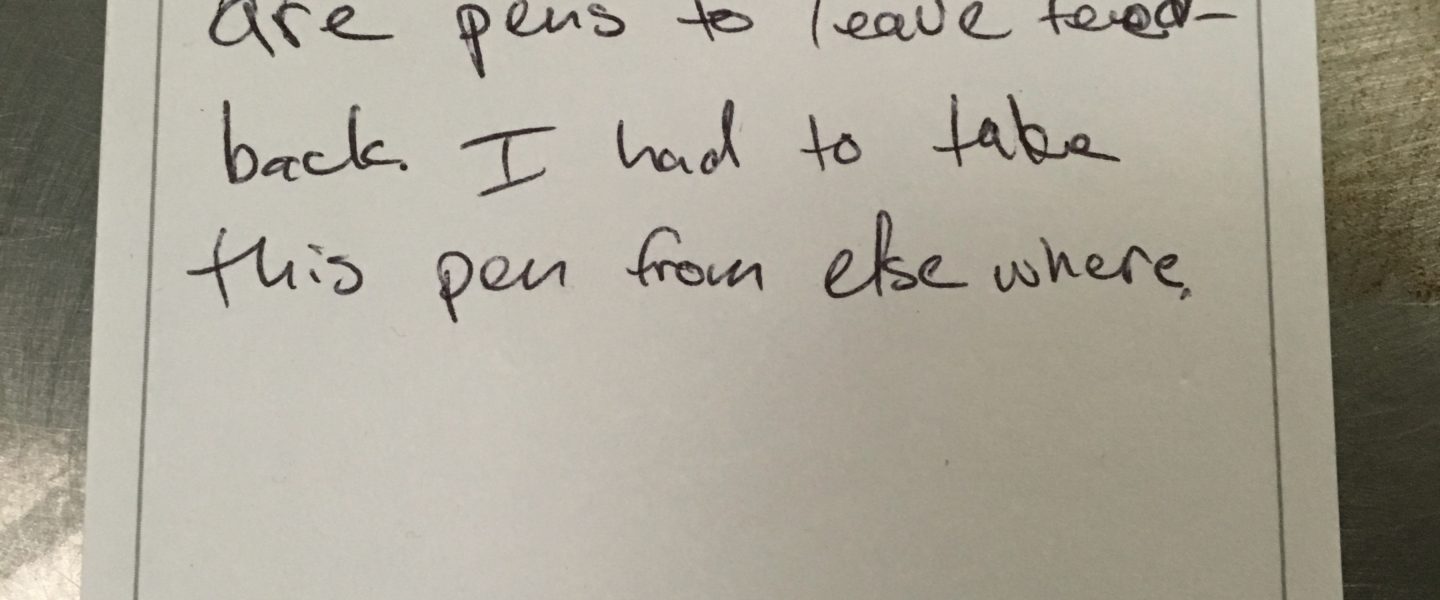 are pens to leave feed-
back. I had to take
this pen from else where.